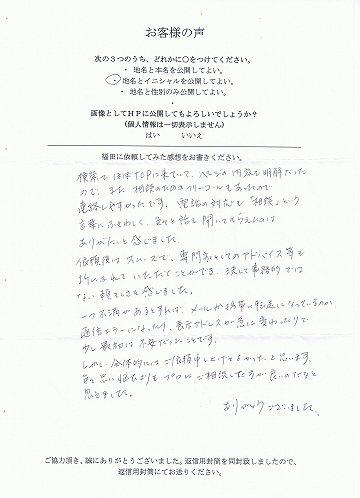 お客様の声
次の３つのうち、どれかに○をつけてください。
・ 地名と本名を公開してよい。
・ 地名とイニシャルを公開してよい。
・ 地名と性別のみ公開してよい。
・
画像としてＨＰに公開してもよろしいでしょうか？
（個人情報は一切表示しません）
はい　　いいえ
福田に依頼してみた感想をお書きください。
検索で ほぼTOPに来ていて、ページの内容も明解だった
ので、また 相談のためのフリーコールもあったので
連絡しやすかったです。電話の対応も「相談」という
言葉にふさわしく、色々と話を聞いてもらえたのは
ありがたいと感じました。
依頼後はスムーズで、専門家としてのアドバイス等も
していただくことができ、決して事務的では
ない頼もしさを感じました。
一つ不満があるとすれば、メールが携帯に転送になっているのか
返信エラーになったり、表示アドレスが急に変わったりで
少し最初は不安だったことです。
しかし、全体的にはご依頼申し上げてよかったと思います。
色々思い悩むよりも プロに ご相談した方が良いのだなと
思えました。
ありがとうございました。
ご協力頂き、誠にありがとうございました。返信用封筒を同封致しましたので、
返信用封筒にてお送りください。